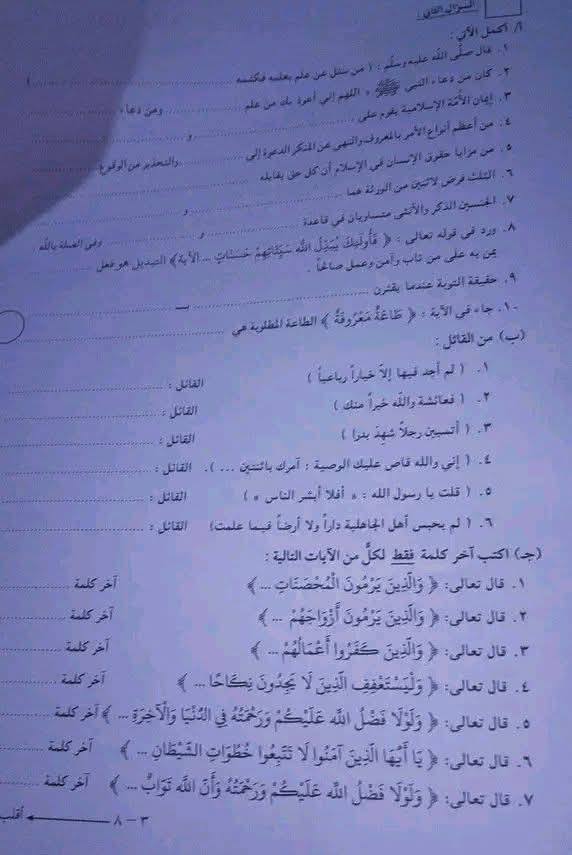 السؤال الثاني :
أ/ أكمل الآتي :
١. قال صلّى الله عليه وسلّم : ( من سئل عن علم يعلمه فكتمه .................... )
٢. كان من دعاء النبي ﷺ « اللهم إني أعوذ بك من علم .................... ومن دعاء ....................
٣. إيمان الأمّة الإسلامية يقوم على .................... و ....................
٤. من أعظم أنواع الأمر بالمعروف والنهي عن المنكر الدعوة إلى .................... والتحذير من الوقوع ....................
٥. من مزايا حقوق الإنسان في الإسلام أن كل حق يقابله ....................
٦. الثلث فرض لاثنين من الورثة هما .................... و ....................
٧. الجنسين الذكر والأنثى متساويان في قاعدة .................... و .................... وفي الصلة بالله
٨. ورد في قوله تعالى : ﴿ فَأُولَٰئِكَ يُبَدِّلُ اللَّه سَيِّئَاتِهِمْ حَسَنَاتٍ ... الآية﴾ التبديل هو فعل ....................
يمن به على من تاب وآمن وعمل صالحاً .
٩. حقيقة التوبة عندما يقترن .................... بـ ....................
١٠. جاء في الآية : ﴿ طَاعَةٌ مَعْرُوفَةٌ ﴾ الطاعة المطلوبة هي ....................
(ب) من القائل :
١. ( لم أجد فيها إلاّ خياراً رباعياً ) القائل : ....................
٢. ( فعائشة والله خيراً منك ) القائل : ....................
٣. ( أتسبين رجلاً شهدَ بدرا ) القائل : ....................
٤. ( إني والله قاص عليك الوصية : آمرك باثنتين ... ). القائل : ....................
٥. ( قلت يا رسول الله : « أفلا أبشر الناس » ) القائل : ....................
٦. ( لم يحبس أهل الجاهلية داراً ولا أرضاً فيما علمت) القائل : ....................
(جـ) اكتب آخر كلمة فقط لكلٍّ من الآيات التالية :
١. قال تعالى: ﴿ وَالَّذِينَ يَرْمُونَ الْمُحْصَنَاتِ ... ﴾ آخر كلمة ....................
٢. قال تعالى: ﴿ وَالَّذِينَ يَرْمُونَ أَزْوَاجَهُمْ ... ﴾ آخر كلمة ....................
٣. قال تعالى: ﴿ وَالَّذِينَ كَفَرُوا أَعْمَالُهُمْ ... ﴾ آخر كلمة ....................
٤. قال تعالى: ﴿ وَلْيَسْتَعْفِفِ الَّذِينَ لَا يَجِدُونَ نِكَاحًا ... ﴾ آخر كلمة ....................
٥. قال تعالى: ﴿ وَلَوْلَا فَضْلُ اللَّه عَلَيْكُمْ وَرَحْمَتُهُ فِي الدُّنْيَا وَالْآخِرَةِ ... ﴾ آخر كلمة ....................
٦. قال تعالى: ﴿ يَا أَيُّهَا الَّذِينَ آمَنُوا لَا تَتَّبِعُوا خُطُوَاتِ الشَّيْطَانِ ... ﴾ آخر كلمة ....................
٧. قال تعالى: ﴿ وَلَوْلَا فَضْلُ اللَّه عَلَيْكُمْ وَرَحْمَتُهُ وَأَنَّ اللَّه تَوَّابٌ ... ﴾ آخر كلمة ....................
٣ - ٨ أقلب